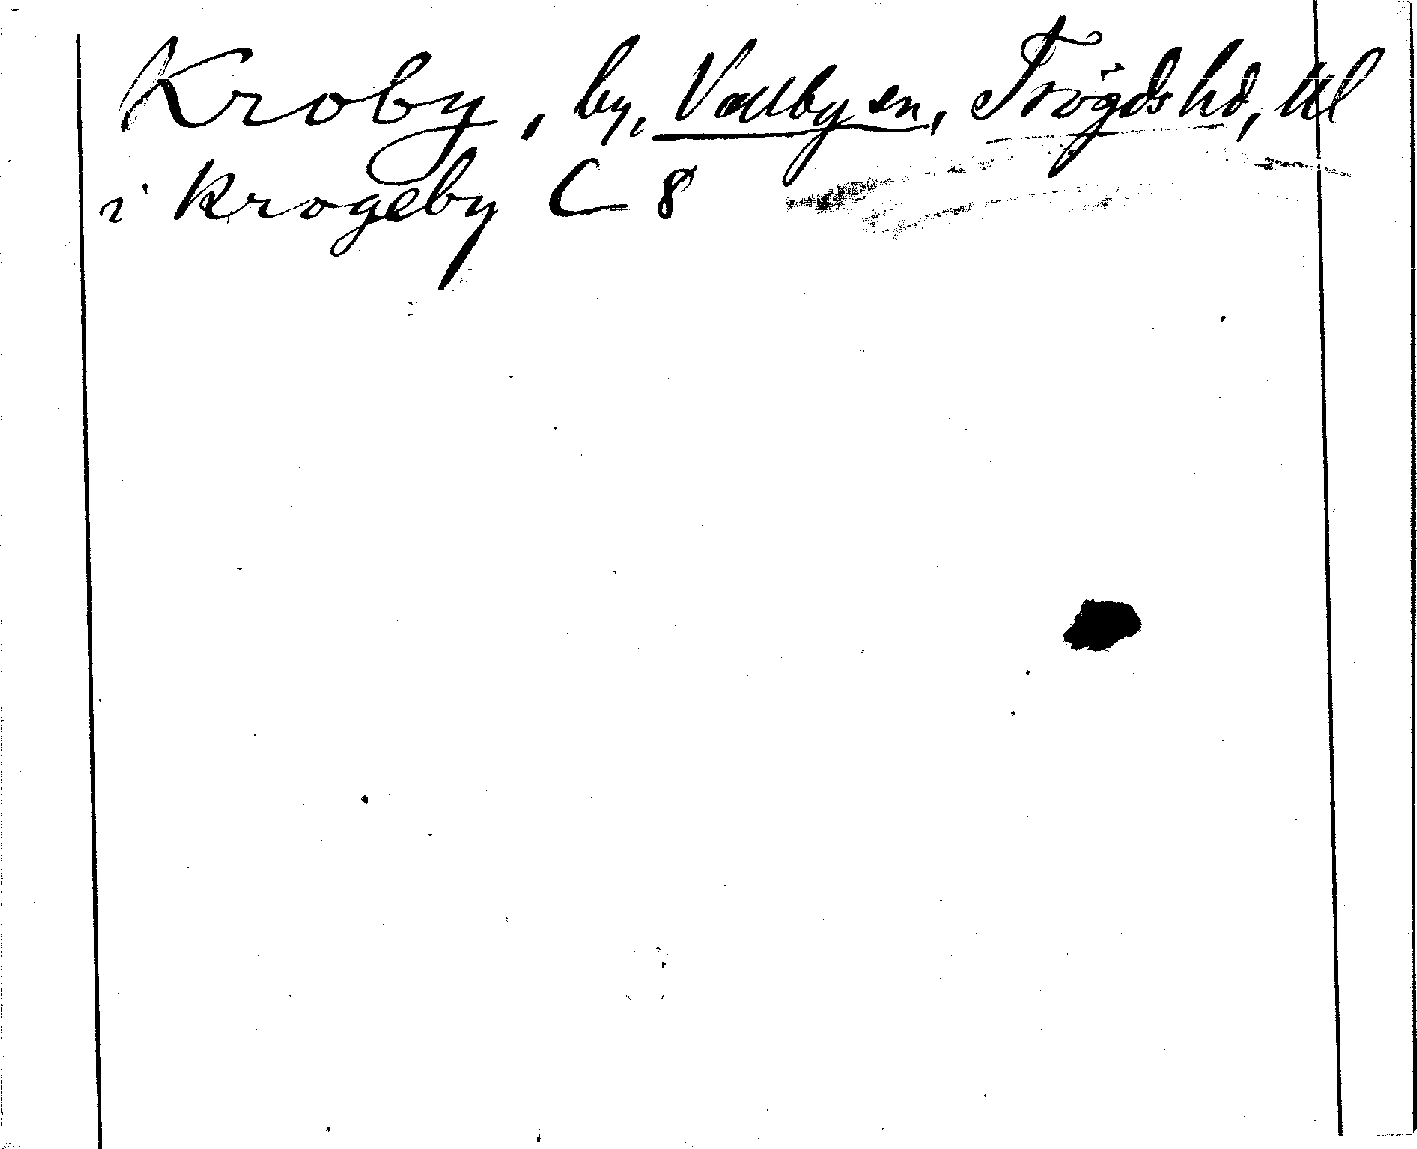 Kroby, by, Vallby sn, Trögds hd, Upl
i krogeby C 8